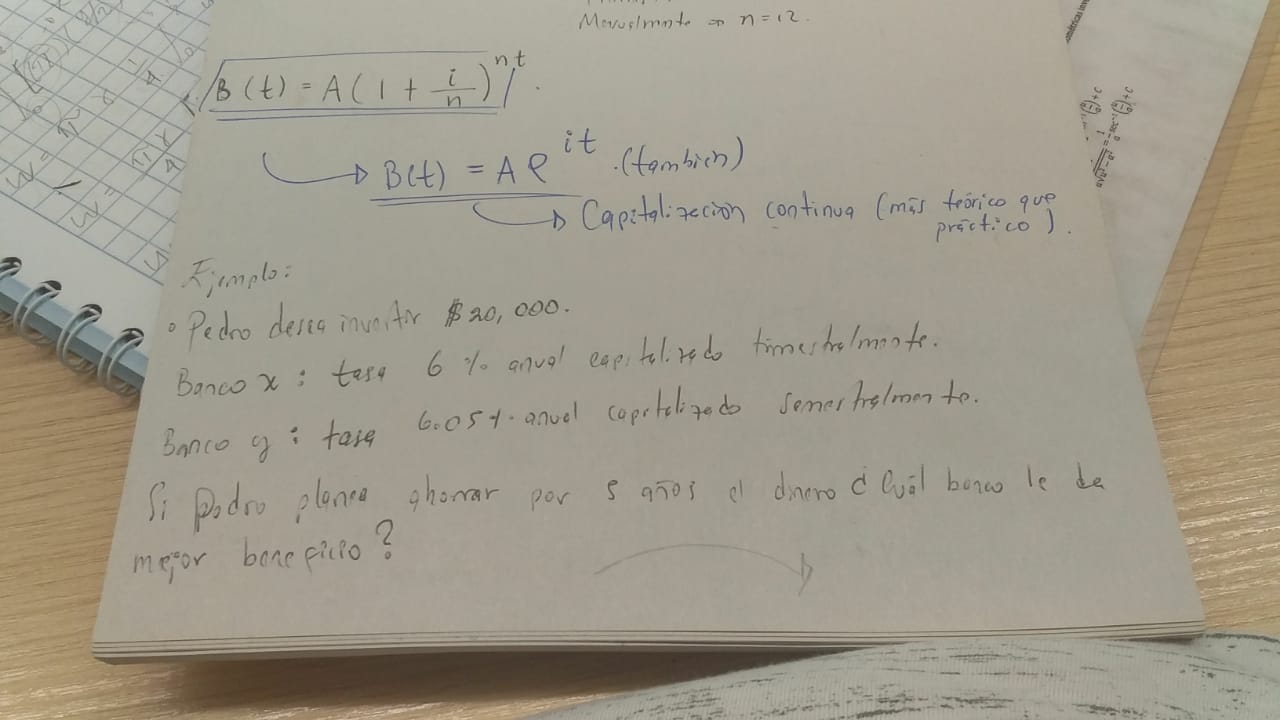 Mensualmente => n=12.
B(t) = A(1 + i/n)^nt.
B(t) = A e^it . (tambien)
Capitalización continua (más teórico que
práctico).
Ejemplo:
° Pedro desea invertir $ 20,000.
Banco x : tasa 6 % anual capitalizado trimestralmente.
Banco y : tasa 6.05 % anual capitalizado semestralmente.
Si Pedro planea ahorrar por 5 años el dinero ¿ Cuál banco le da
mejor beneficio?